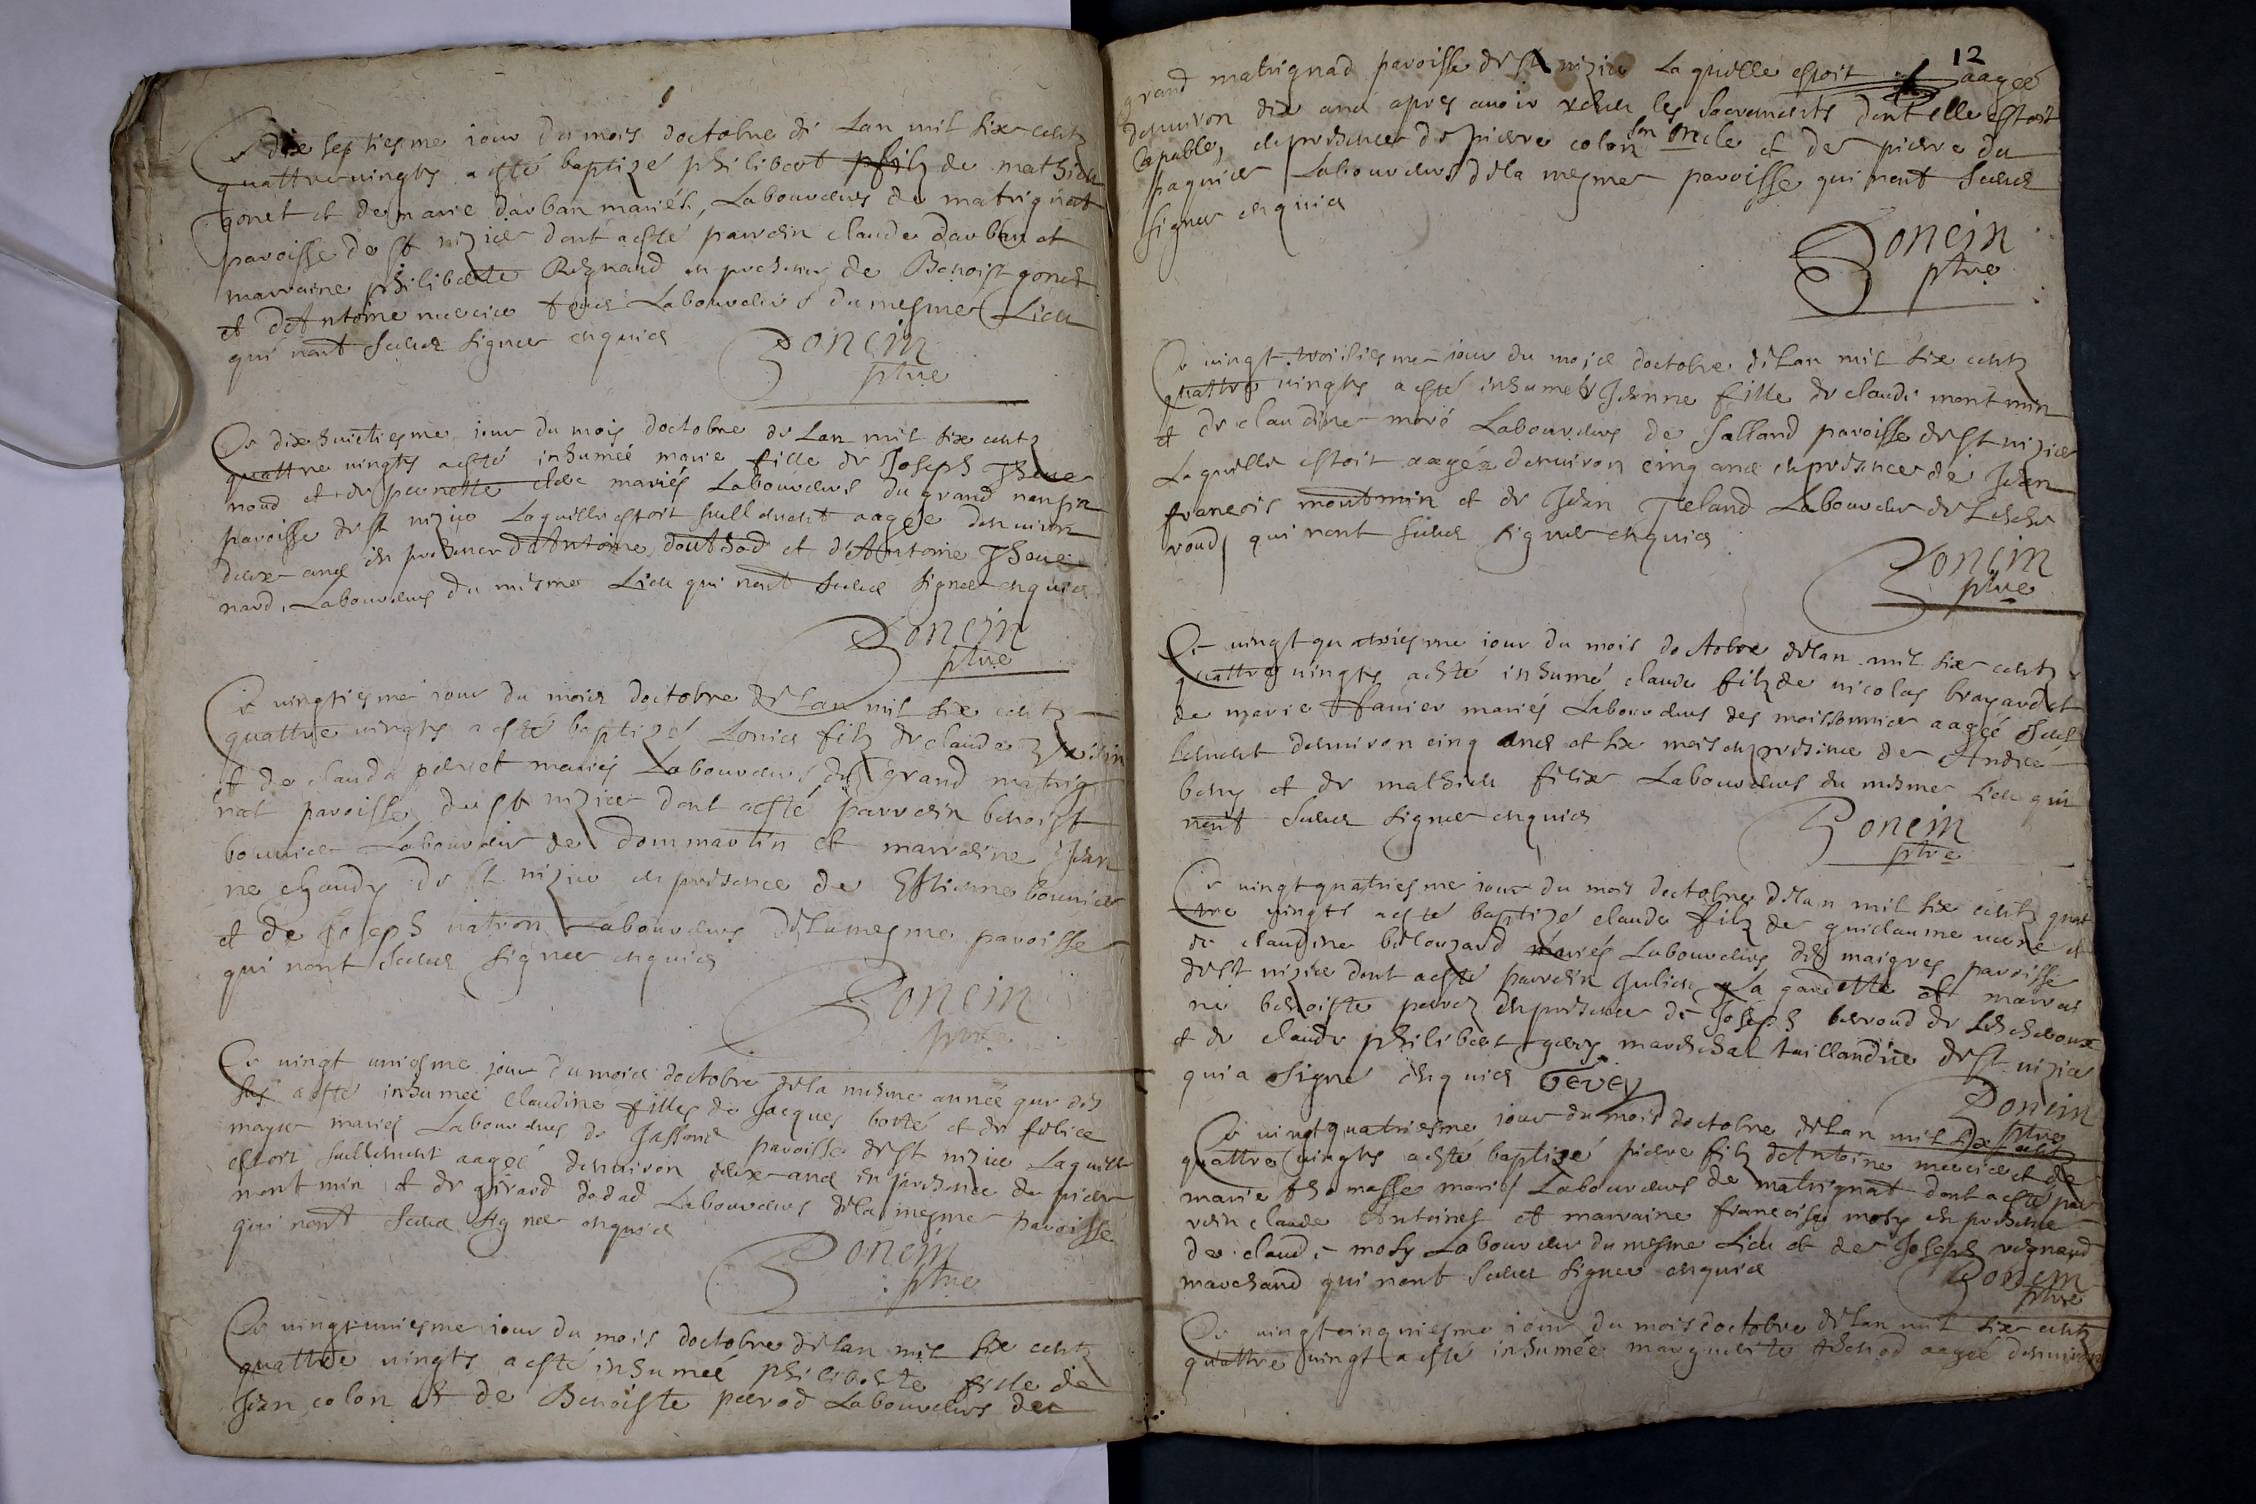 Ce dix septiesme iour du mois doctobre de Lan mil six centz
quattre vingtz a esté baptizé philibert filz de mathieu
gonet et de marie darban mariés, Laboureurs de matrignat
paroisse de st nizier dont a esté parrein claude darban et
marraine philiberte Regnaud en presence de Benoist gonet
et dAntoine mercier tous Laboureurs du mesme Lieu
qui nont sceus signer enquis
Poncin
ptre
Ce dix huictiesme iour du mois doctobre de Lan mil six centz
quattre vingtz a esté inhumeé marie fille de Joseph Theue
nard et de pernette mariés Laboureurs du grand
paroisse de st nizier Laquelle estoit seullement aagée denuiron
deux ans en presence dAntoine douthod et dAntoine Theue
nard, Laboureurs du mesme Lieu qui nont sceus signer enquis
Poncin
ptre
Ce vingtiesme iour du mois doctobre de Lan mil six centz
quattre vingtz a esté baptizé Louis filz de claude
et de claude perret mariés Laboureurs du grand matrig
nat paroisse de st nizier dont a esté parrein benoist
bouuier Laboureur de dommartin et marreine Jean
ne chandy de st nizier en presence de Estienne bouuier
et de Joseph nation Laboureurs de la mesme paroisse
qui nont sceus signer enquis
Poncin
ptre
Ce vingt uniesme iour du mois doctobre de la mesme année que des
sus a esté inhumeé claudine fille de Jacques borté et de felice
mariés Laboureurs de Jassond paroisse de st nizier Laquelle
estoit seullement aageé denuiron deux ans en presence de pierre
montmin et de girard dadad Laboureurs de la mesme paroisse
qui nont sceus signer enquis
Poncin
ptre
Ce vingtuniesme iour du mois doctobre de Lan mil six centz
quattre vingtz a esté inhumeé philiberte fille de
Jean colon et de Benoiste perrod Laboureurs du
12
grand matrignad paroisse de st nizier Laquelle estoit aageé
denuiron dix ans apres auoir receu les Sacrements dont elle estoit
Capable, en presence de pierre colon son oncle et de pierre du
paquier Laboureurs de la mesme paroisse qui nont sceus
signer enquis
Poncin
ptre
Ce vingt troisiesme iour du mois doctobre de Lan mil six centz
quattre vingtz a esté inhumeé Jeanne fille de claude montmin
et de claudine moré Laboureurs de Jassond paroisse de st nizier
Laquelle estoit aageé denuiron cinq ans en presence de Jean
francois montmin et de Jean Teland Laboureur de Leche
roud, qui nont sceus signer enquis
Poncin
ptre
Ce vingt quatriesme iour du mois doctobre de Lan mil six centz
quattre vingtz a esté inhumé claude filz de nicolas brayard et
de marie fauier mariés Laboureurs des moissonnier aageé seul
lement denuiron cinq ans et six mois en presence de Andrea
beny et de mathieu felix Laboureurs du mesme Lieu qui
nont sceus signer enquis
Poncin
ptre
Ce vingt quatriesme iour du mois doctobre de Lan mil six centz quat
tre vingtz a esté baptizé claude filz de guillaume et
de claudine belouzard mariés Laboureurs des maigres paroisse
de st nizier dont a esté parrein Julien La gaudette et marrei
ne benoiste perret en presence de Joseph berroud de Lescheroux
et de claude philibert geuey mareschal taillandier de st nizier
qui a signé enquis Gevey
Poncin
ptre
Ce vingt quatriesme iour du mois doctobre de Lan mil six centz
quattre vingtz a esté baptizé pierre filz dAntoine mercier et de
marie thomasse mariés Laboureurs de matrignat dont a esté par
rein claude Antoinet et marraine francoise mosy en presence
de claude mosy Laboureur du mesme Lieu et de Joseph regnaud
marchand qui nont sceus signer enquis
Poncin
ptre
Ce vingt cinquiesme iour du mois doctobre de Lan mil six centz
quattre vingt a esté inhumée marguerite aageé denuiron